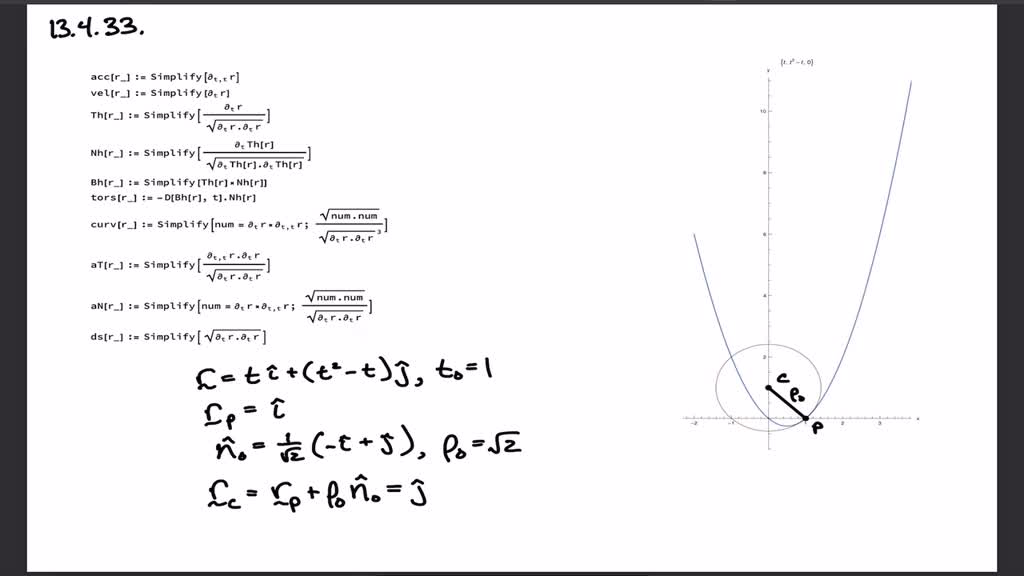 13.4.33.
acc[r_] := Simplify[∂ₜ,ₜ r]
vel[r_] := Simplify[∂ₜ r]
Th[r_] := Simplify[∂ₜ r / √(∂ₜ r.∂ₜ r)]
Nh[r_] := Simplify[∂ₜ Th[r] / √(∂ₜ Th[r].∂ₜ Th[r])]
Bh[r_] := Simplify[Th[r]×Nh[r]]
tors[r_] := -D[Bh[r], t].Nh[r]
curv[r_] := Simplify[num = ∂ₜ r×∂ₜ,ₜ r; √(num.num) / √(∂ₜ r.∂ₜ r)³]
aT[r_] := Simplify[∂ₜ,ₜ r.∂ₜ r / √(∂ₜ r.∂ₜ r)]
aN[r_] := Simplify[num = ∂ₜ r×∂ₜ,ₜ r; √(num.num) / √(∂ₜ r.∂ₜ r)]
ds[r_] := Simplify[√(∂ₜ r.∂ₜ r)]
r = t î + (t² - t) ĵ, t₀ = 1
r_p = î
n̂₀ = 1/√2 (-î + ĵ), ρ₀ = √2
r_c = r_p + ρ₀ n̂₀ = ĵ
{t, t² - t, 0}
y
10
8
6
4
2
C
ρ₀
P
-2 -1 1 2 3 x